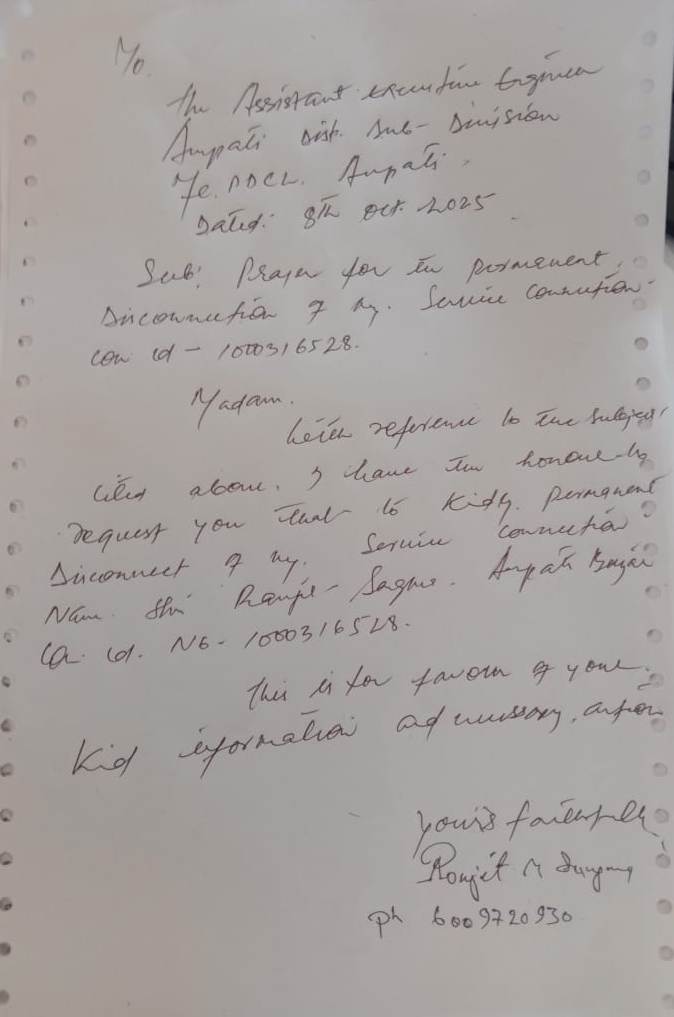 To.
The Assistant executive Engineer
Ampati Dist. Sub-Division
Me.PDCL. Ampati.
Dated: 8th Oct. 2025
Sub: Prayer for the permanent
Disconnection of my. Service Connection.
Con id - 1000316528.
Madam.
With reference to the subject
cited above. I have the honour to
request you that to kidly. permanent
Disconnect of my. Service connection
Name Shri Ranjit Ampati Bazar
id. No - 1000316528.
This is for favour of your.
Kid information and necessary, action
Yours faithfully
Ronjit M
ph 6009720930